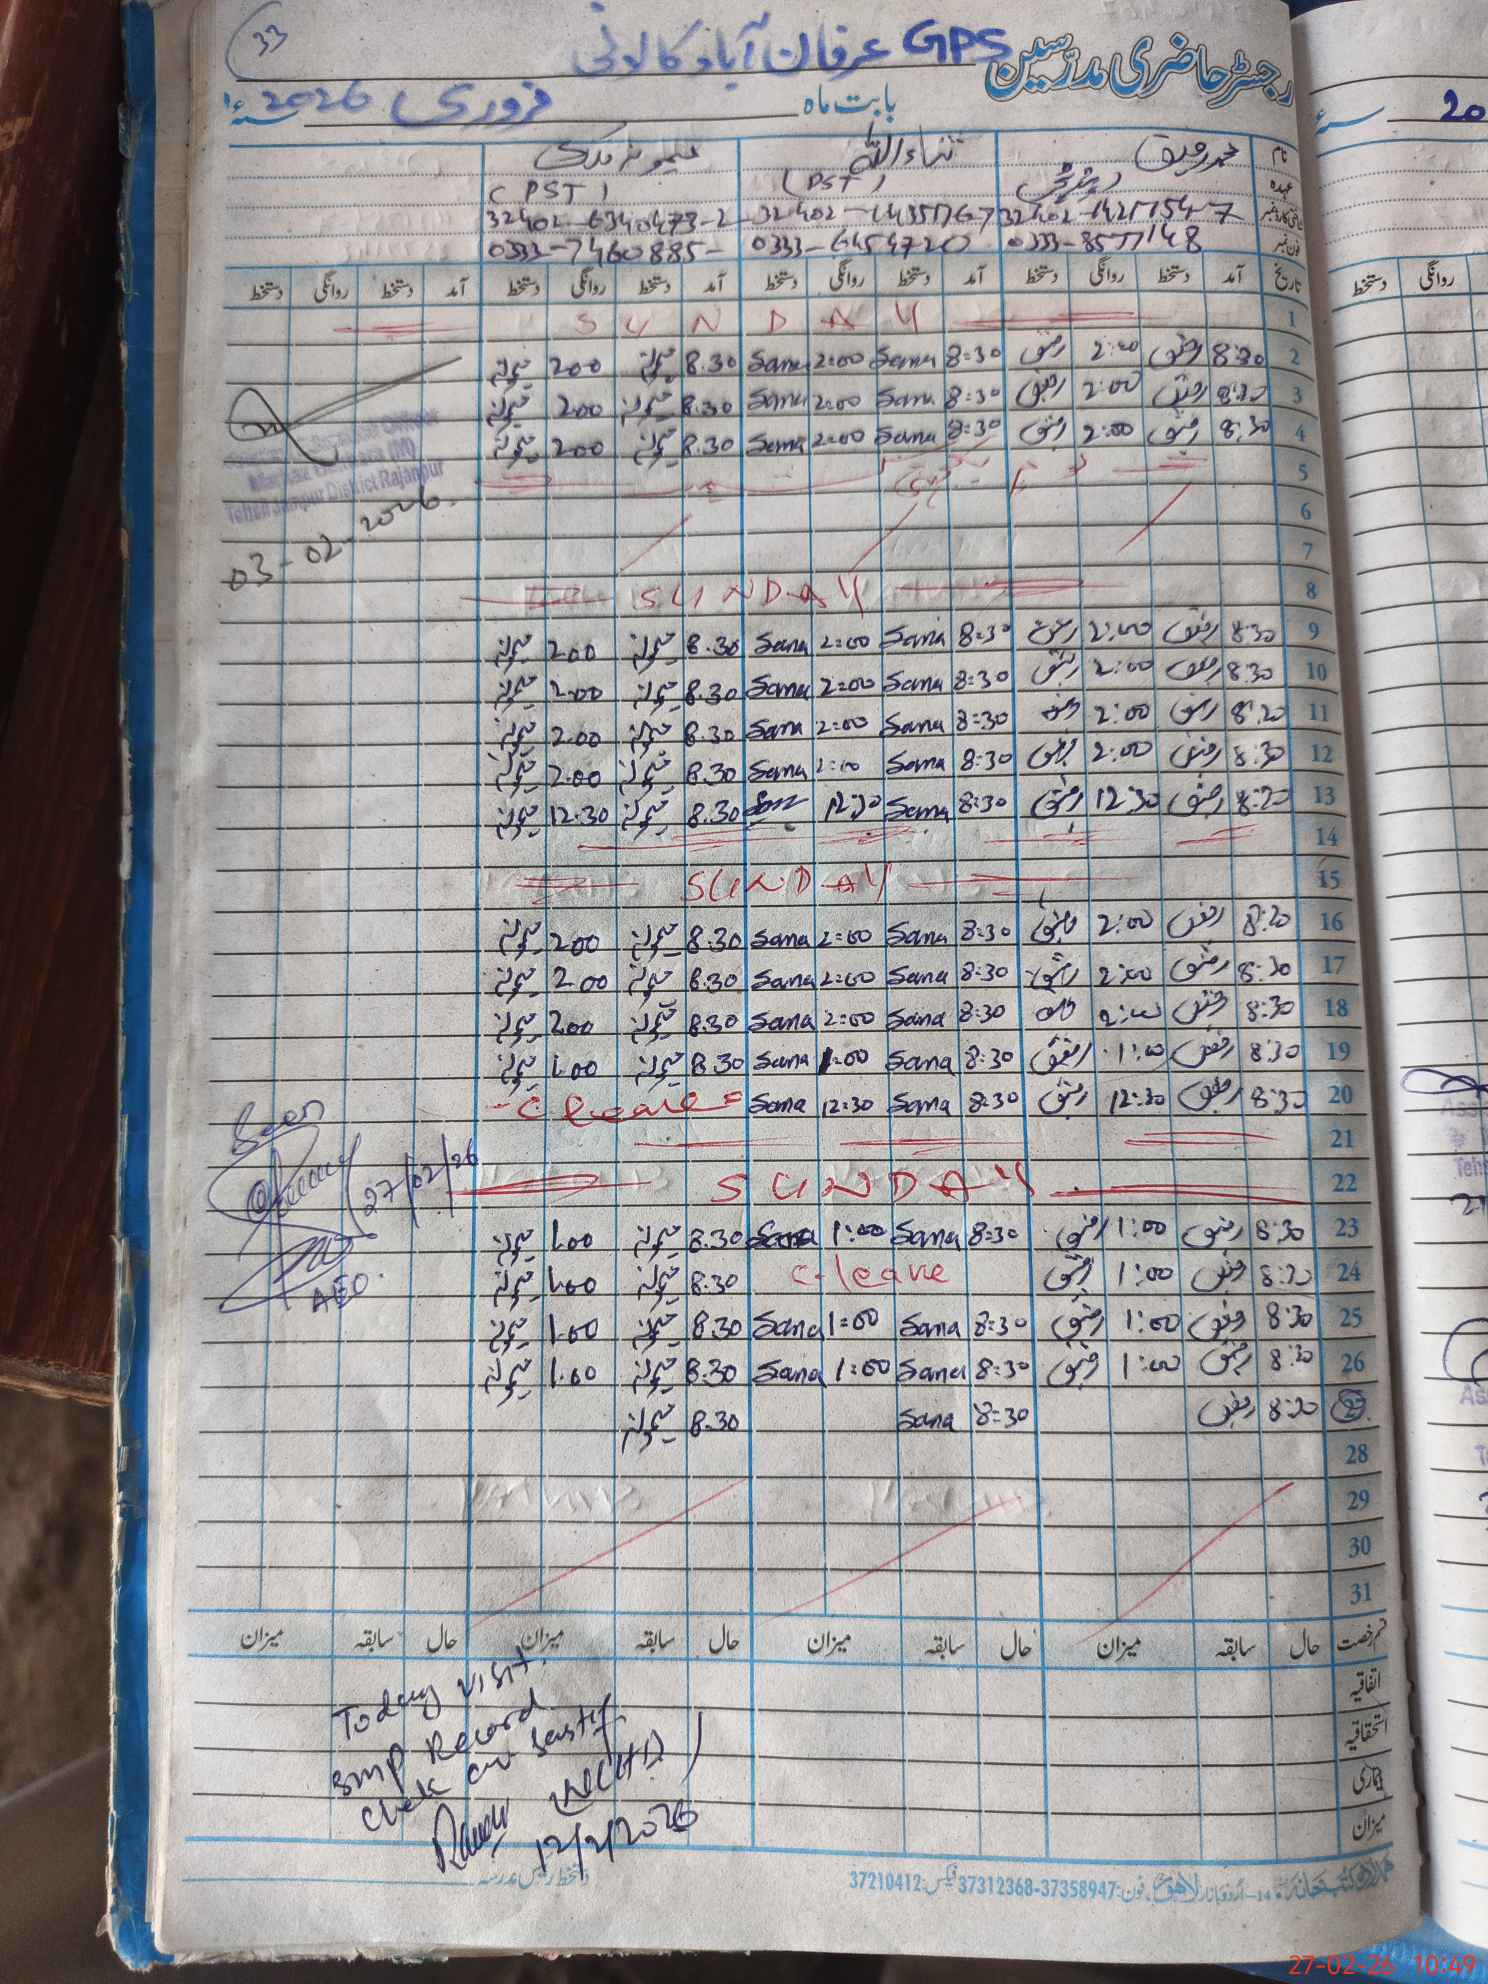 33
رجسٹر حاضری مدرّسین GPS عرفان آباد کالونی
بابت ماہ فروری 2026 سنہء
نام محمد رفیق ثناء اللہ
عہدہ (PST) (PST)
32402-6340473-2
فون نمبر 0333-8577148 0333-6454720 0333-7460885
تاریخ آمد دستخط روانگی دستخط آمد دستخط روانگی دستخط آمد دستخط روانگی دستخط آمد دستخط روانگی دستخط
1 SUNDAY
2 8:30 رفیق 2:00 رفیق 8:30 Sana 2:00 Sana 8.30 2.00
3 8:30 رفیق 2:00 رفیق 8:30 Sana 2:00 Sana 8.30 2.00
4 8:30 رفیق 2:00 رفیق 8:30 Sana 2:00 Sana 8.30 2.00
5
6
7
8 SUNDAY
9 8:30 رفیق 2:00 رفیق 8:30 Sana 2:00 Sana 8.30 2.00
10 8:30 رفیق 2:00 رفیق 8:30 Sana 2:00 Sana 8.30 2.00
11 8:30 رفیق 2:00 رفیق 8:30 Sana 2:00 Sana 8.30 2.00
12 8:30 رفیق 2:00 رفیق 8:30 Sana 2:00 Sana 8.30 2.00
13 8:30 رفیق 12:30 رفیق 8:30 Sana 12:30 8.30 12.30
14
15 SUNDAY
16 8:30 رفیق 2:00 رفیق 8:30 Sana 2:00 Sana 8.30 2.00
17 8:30 رفیق 2:00 رفیق 8:30 Sana 2:00 Sana 8.30 2.00
18 8:30 رفیق 2:00 رفیق 8:30 Sana 2:00 Sana 8.30 2.00
19 8:30 رفیق 1:00 رفیق 8:30 Sana 1:00 Sana 8.30 1.00
20 8:30 رفیق 12:30 رفیق 8:30 Sana 12:30 Sana C leave
21
22 SUNDAY
23 8:30 رفیق 1:00 رفیق 8:30 Sana 1:00 Sana 8.30 1.00
24 8:30 رفیق 1:00 رفیق C-leave 8.30 1.00
25 8:30 رفیق 1:00 رفیق 8:30 Sana 1:00 Sana 8.30 1.00
26 8:30 رفیق 1:00 رفیق 8:30 Sana 1:00 Sana 8.30 1.00
27 8:30 رفیق 8:30 Sana 8.30
28
29
30
31
Tehsil Jampur District Rajanpur
03-02-2026
Seen
27/02/26
AEO
قسم رخصت حال سابقہ میزان حال سابقہ میزان حال سابقہ میزان حال سابقہ میزان
اتفاقیہ
استحقاقیہ
بیماری
میزان
Today visit
Record
12/2/2026
دستخط رئیس مدرسہ
14-اردو بازار لاہور فون: 37358947-37312368 فیکس: 37210412
20
سنہء
روانگی دستخط
27-02-26 10:49